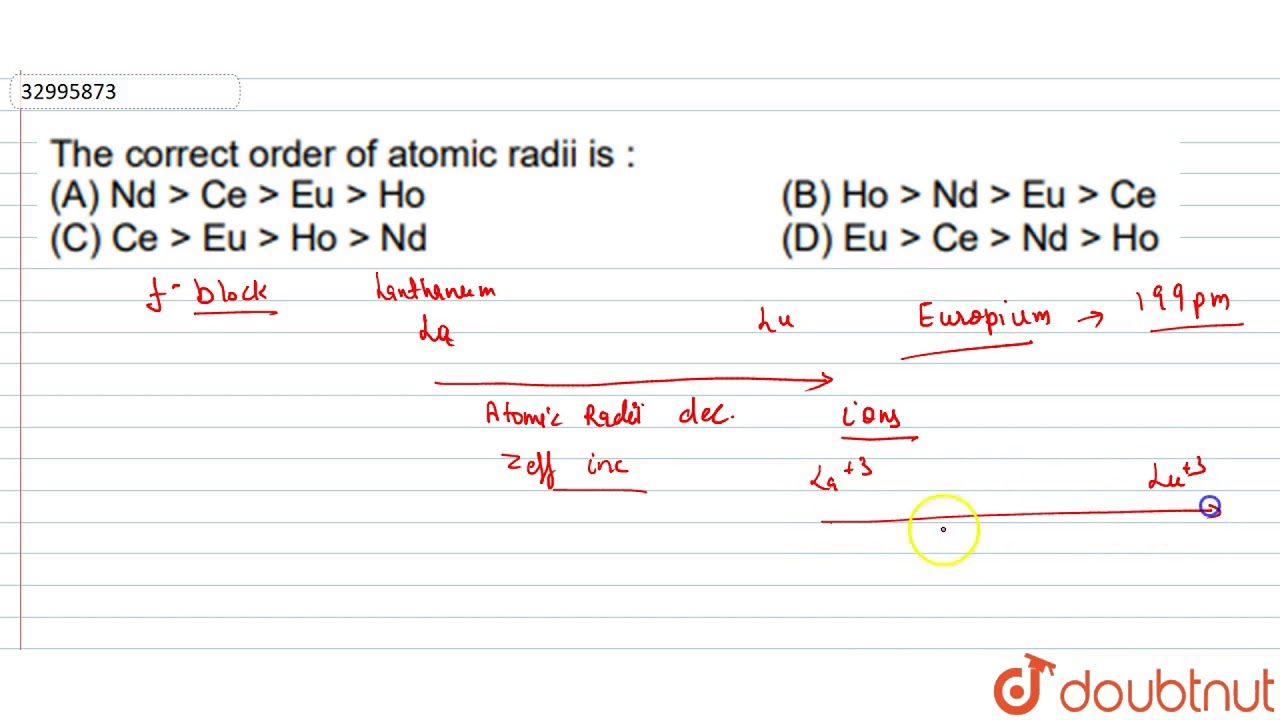 32995873
The correct order of atomic radii is :
(A) Nd > Ce > Eu > Ho
(B) Ho > Nd > Eu > Ce
(C) Ce > Eu > Ho > Nd
(D) Eu > Ce > Nd > Ho
f- block
Lanthanum
La
Lu
Europium → 199pm
Atomic Radii dec.
ions
Zeff inc
La+3
Lu+3
doubtnut